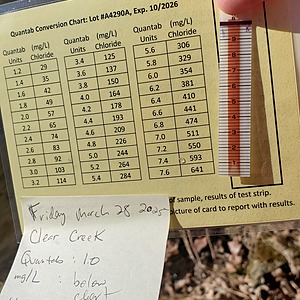 Quantab Conversion Chart: Lot #A4290A, Exp. 10/2026
Quantab Units (mg/L) Chloride Quantab Units (mg/L) Chloride Quantab Units (mg/L) Chloride
1.2 29 3.4 125 5.6 306
1.4 35 3.6 137 5.8 329
1.6 42 3.8 150 6.0 354
1.8 49 4.0 164 6.2 381
2.0 57 4.2 178 6.4 410
2.2 65 4.4 193 6.6 441
2.4 74 4.6 209 6.8 474
2.6 83 4.8 226 7.0 511
2.8 92 5.0 244 7.2 550
3.0 103 5.2 264 7.4 593
3.2 114 5.4 284 7.6 641
of sample, results of test strip.
picture of card to report with results.
Friday March 28 2025
Clear Creek
Quantab: 1.0
mg/L : below
chart